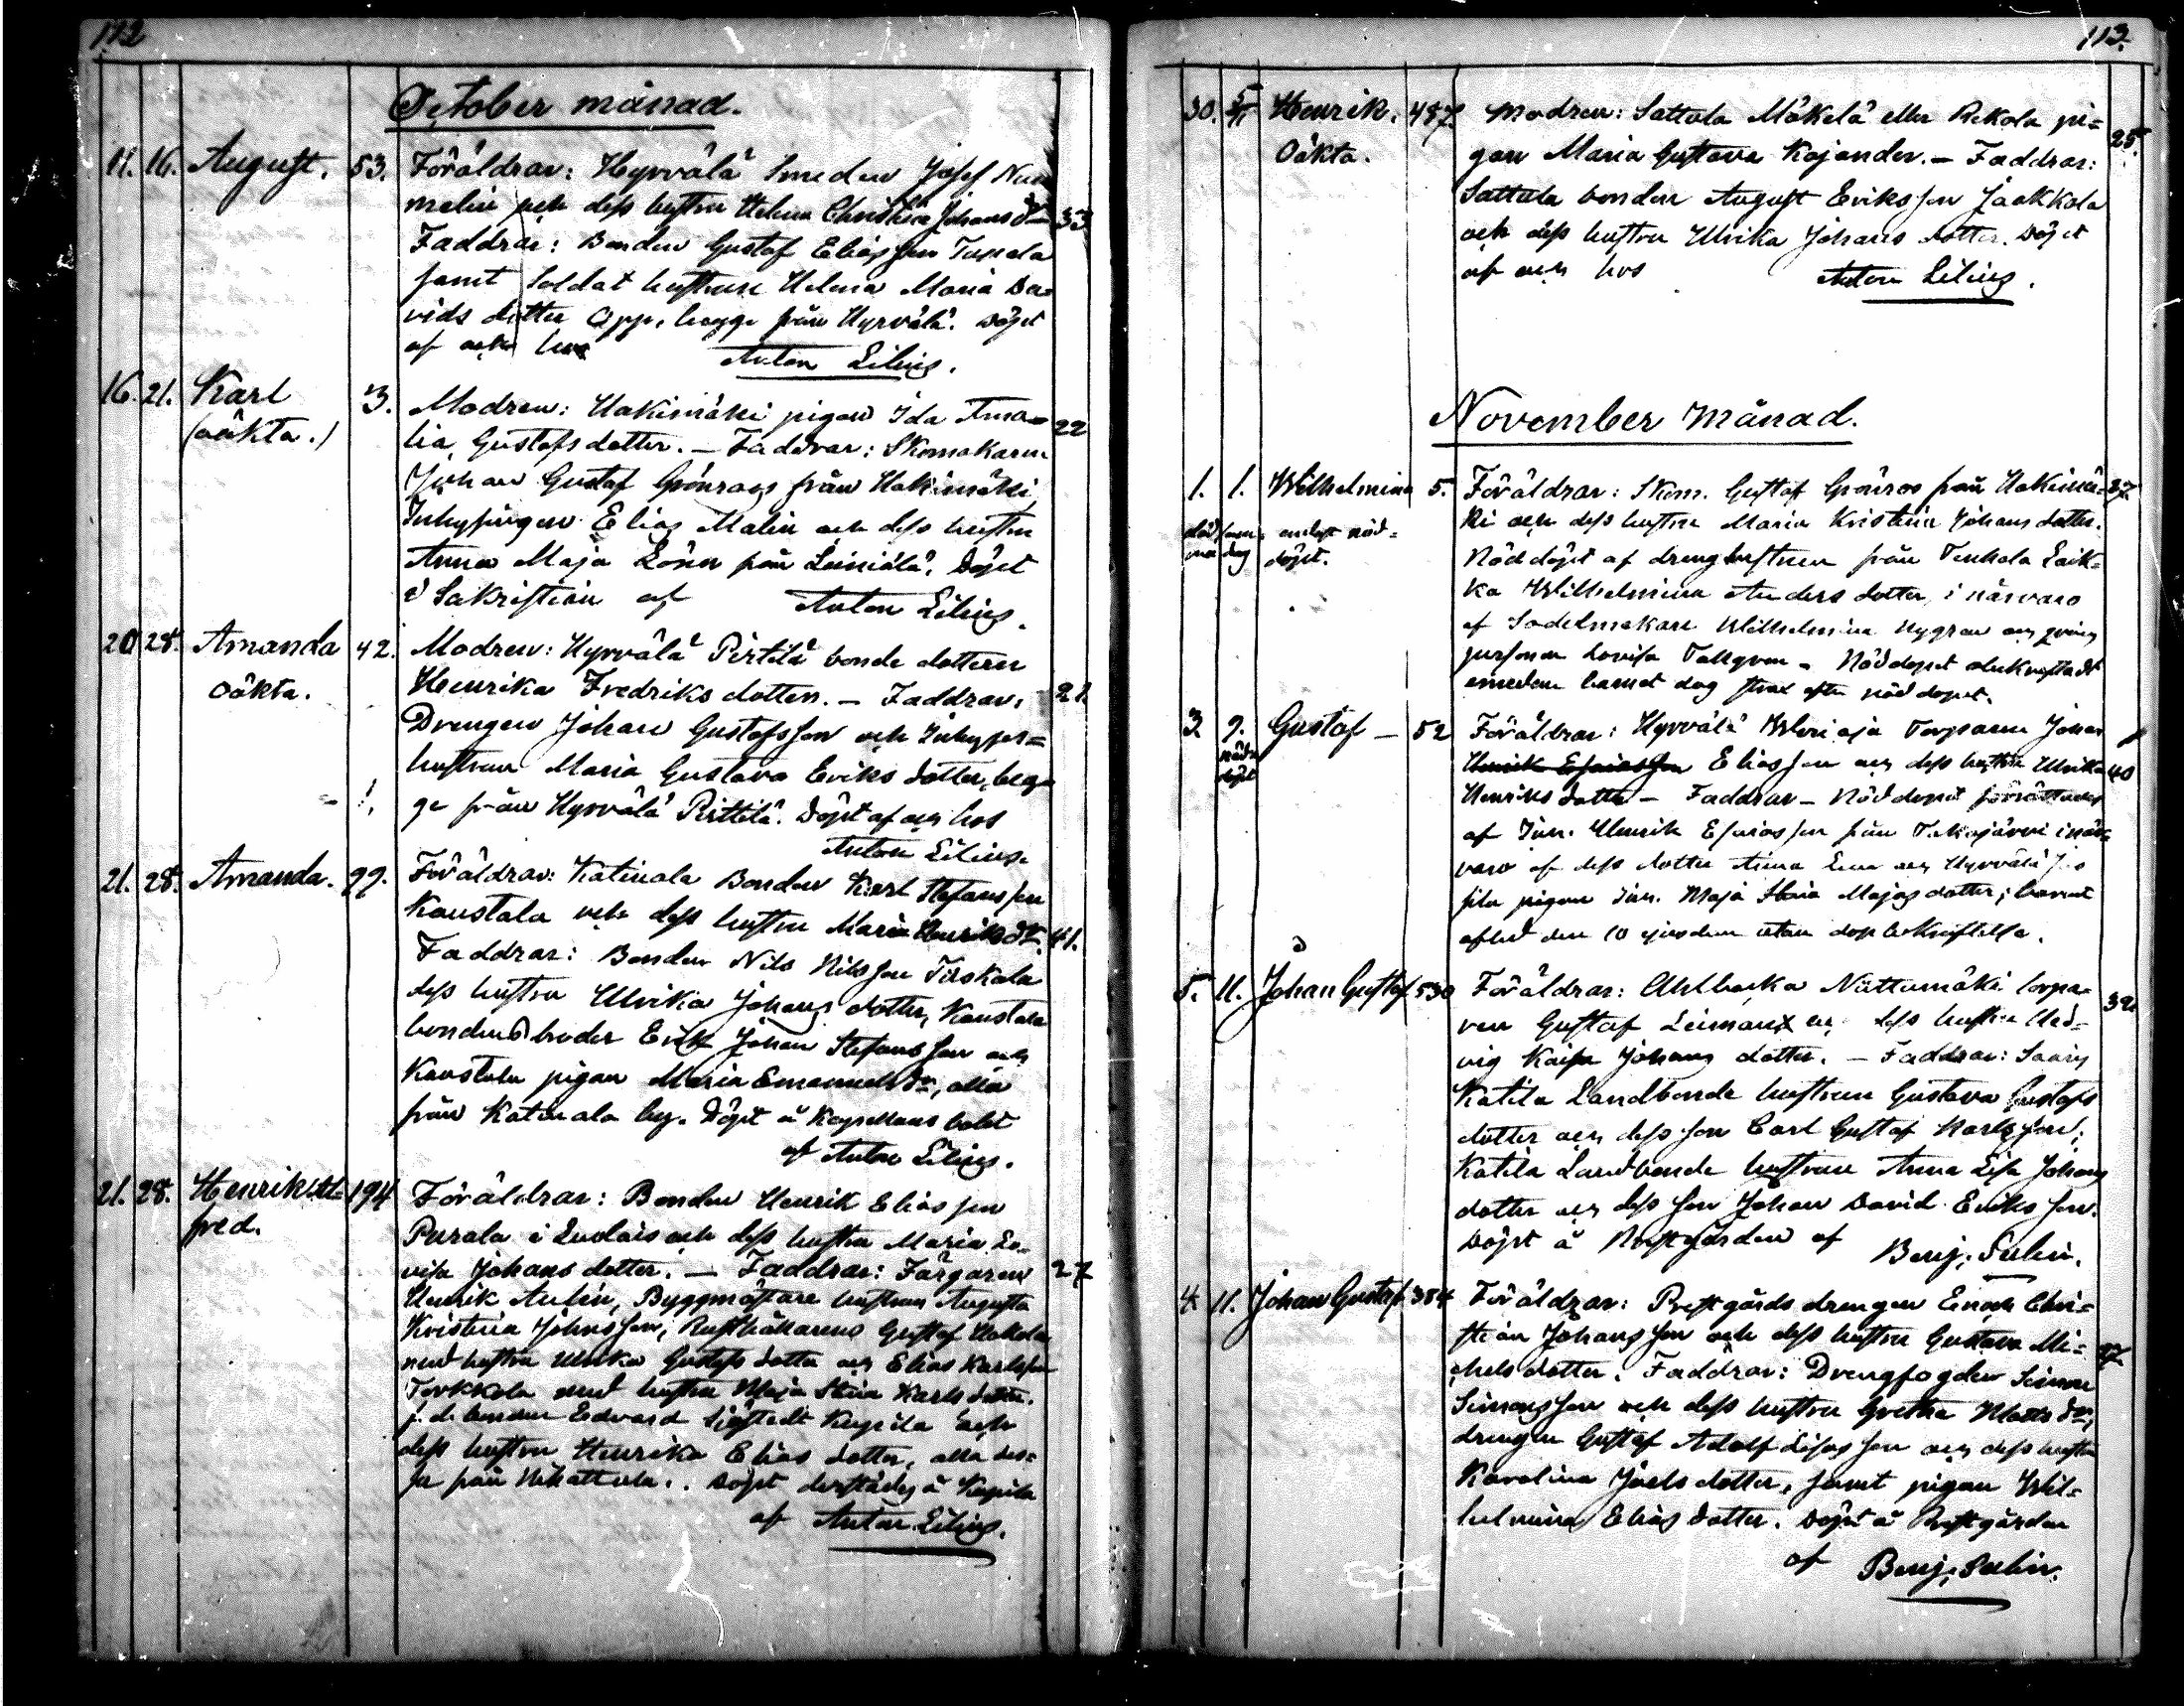 112
October månad.
11. 16. August. 53. Föräldrar: Hyrvälä Smeden Josef Num
melin och dess hustru Helena Christina Johansdr 33
Faddrar: Bonden Gustaf Eliasson
samt Soldat hustrun Helena Maria Da=
vids dotter begge från Hyrvälä. Döpt
af och hos Anton Lilius.
16. 21. Karl 3. Modren: Hakimäki pigan Ida Ama= 22
(oäkta.) lia Gustafsdotter. — Faddrar: Skomakaren
Johan Gustaf Grönroos från Hakimäki
Inhysingen Elias Malin och dess hustru
Anna Maja Lönn från Leiniälä. Döpt
i Sakristian af Anton Lilius.
20 28. Amanda 42. Modren: Hyrvälä Pirttilä bonde dottern
oäkta. Henrika Fredriks dotter. — Faddrar: 21.
Drengen Johan Gustafsson och Inhyses=
hustrun Maria Gustava Eriks dotter, beg=
ge från Hyrvälä Pirttilä. Döpt af och hos
Anton Lilius.
21. 28. Amanda. 99. Föräldrar: Katinala Bonden Karl Stefansson
Kaustala och dess hustru Maria Henriksdr. 41.
Faddrar: Bonden Nils Nilsson Tiiskala
dess hustru Ulrika Johans dotter, Kaustala
bondens broder Erik Johan Stefansson och
Kaustala pigan Maria Emanuelsdr, alla
från Katinala by. Döpt å Kapellansbolet
af Anton Lilius.
21. 28. Henrik Al= 194 Föräldrar: Bonden Henrik Eliasson
fred. Parola i Luolais och dess hustru Maria Lo=
visa Johans dotter. — Faddrar: Färgaren 27
Henrik Aulin, Byggmästare hustrun Augusta
Kristina Johnsson, Rusthållarens Gustaf Hakola
med hustru Ulrika Gustafs dotter och Elias Karlsson
Torkkola med hustru Maja Stina Karls dotter.
f. d. bonden Edvard Sjöstedt Kupila och
dess hustru Henrika Elias dotter, alla des=
sa från Nihattula. Döpt derstädes å Kupila
af Anton Lilius.
113.
30. 5/11 Henrik. 487. Modren: Sattula Mäkelä eller Rekola pi= 25.
Oäkta. gan Maria Gustava Kajander. — Faddrar:
Sattula bonden August Eriksson Jaakkola
och dess hustru Ulrika Johans dotter. Döpt
af och hos Anton Lilius.
November Månad.
1. 1. Wilhelmina 5. Föräldrar: Skom. Gustaf Grönroos från Hakimä= 37.
endast nöd= ki och dess hustru Maria Kristina Johans dotter.
döpt. Nöddöpt af dreng hustrun från Tenhola Eeik=
ka Wilhelmina Anders dotter, i närvaro
af Sadelmakare Wilhelmina Nygren och
Lovisa Tallgren. Nöddopet obekräftadt
emedan barnet dog strax efter nöddopet.
3. 9. Gustaf — 52 Föräldrar: Hyrvälä Torparen Johan
nöd= döpt Henrik Esaiasson Eliasson och dess hustru Ulrika 40
Henriks dotter — Faddrar — Nöddopet förrättades
af Inh. Henrik Esaiasson från i när=
varo af dess dotter Anna och Hyrvälä
pigan Inh. Maja Stina Majas dotter; barnet
afled den 10 ejusdem utan dop bekräftelse.
5. 11. Johan Gustaf 530 Föräldrar: Ahlbacka Niittumäki torpa= 32
ren Gustaf Leiman och dess hustru Hed=
vig Kaisa Johans dotter. — Faddrar: Saaris
Katila Landbonde hustrun Gustava Gustafs
dotter och dess son Carl Gustaf Karlsson,
Katila Landbonde hustrun Anna Lisa Johans
dotter och dess son Johan David Eriksson.
Döpt å Prestgården af Benj. Salin.
4. 11. Johan Gustaf 384 Föräldrar: Prestgårds drengen Enok Chri=
stian Johansson och dess hustru Gustava Mi= 27
chels dotter. Faddrar: Drengfogden Simon
Simonsson och dess hustru Gretha Matts dr,
drengen Gustaf Adolf och dess hustru
Karolina Joels dotter, samt pigan Wil=
helmina Elias dotter. Döpt å Prestgården
af Benj. Salin.